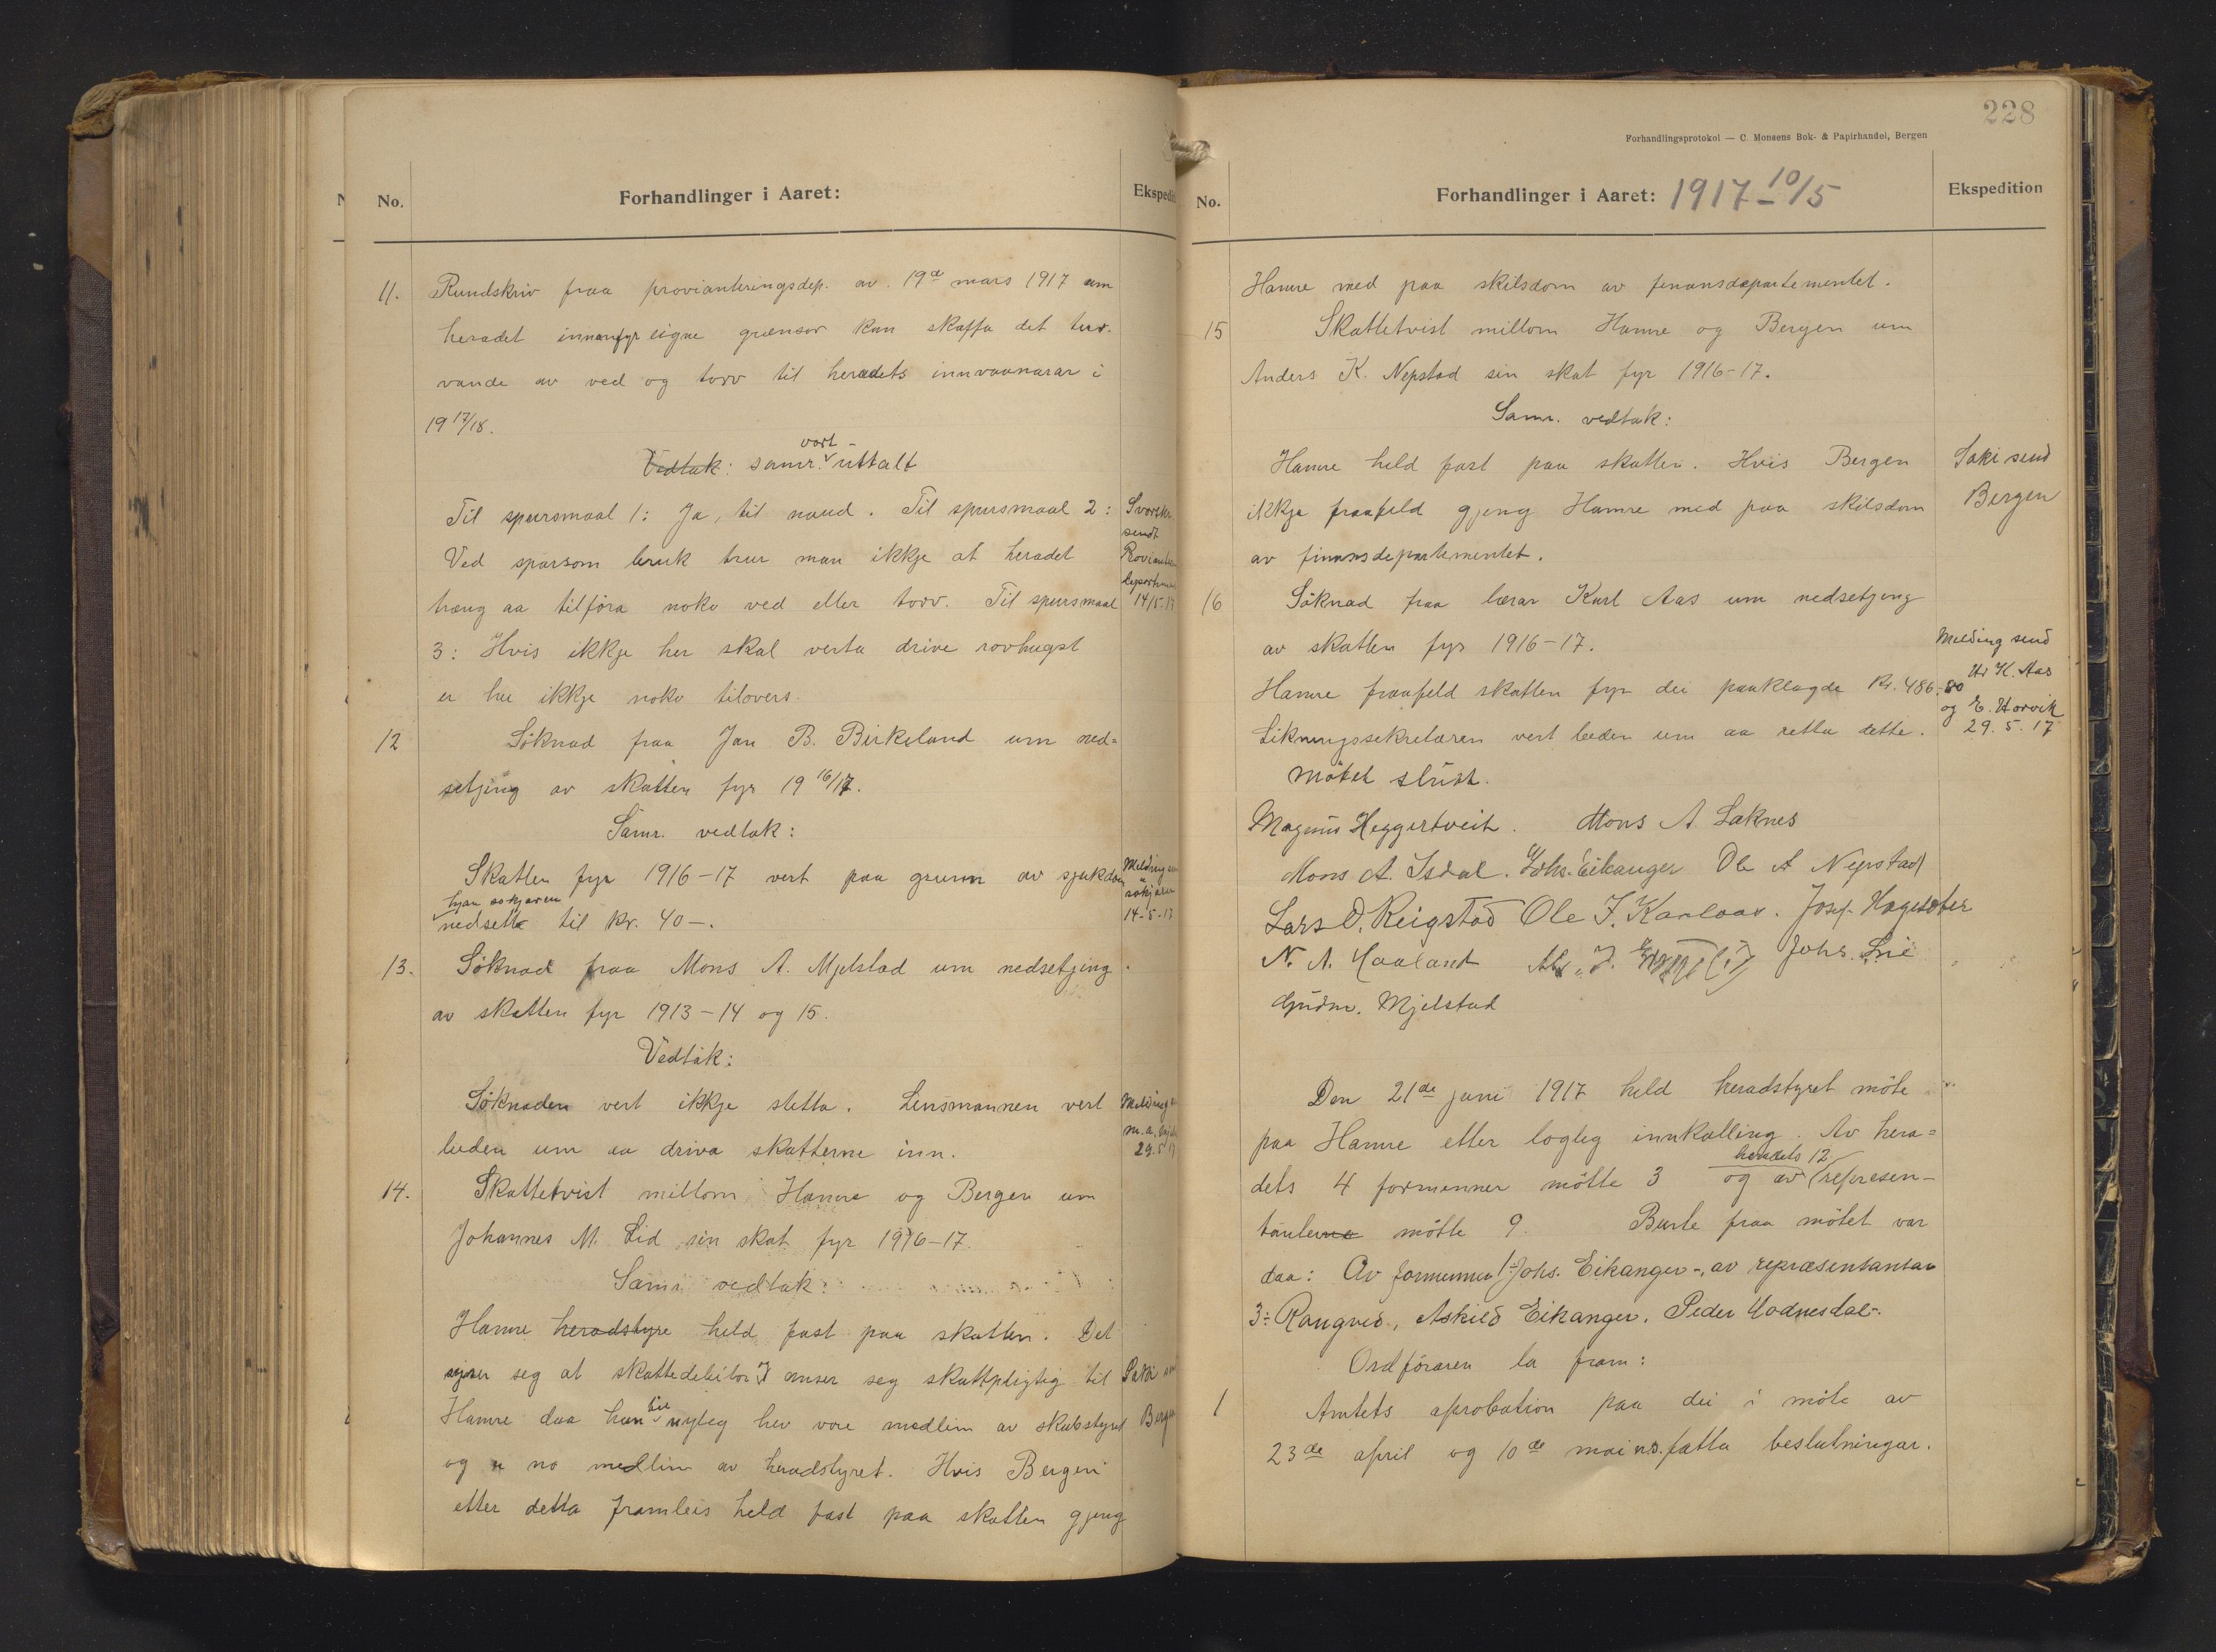 No.
Forhandlinger i Aaret:
Ekspedi
11. Rundskriv fraa provianteringsdep. av 19de mars 1917 um
heradet innanfyr eigne grænsor kan skaffa det tur-
vande av ved og torv til heradets innvaanarar i
19 17/18.
Vedtak: samr. vart uttalt
Til spursmaal 1: Ja, til naud. Til spursmaal 2:
Ved sparsom bruk trur man ikkje at heradet
træng aa tilföra noko ved eller torv. Til spursmaal
3: Hvis ikkje her skal verta drive rovhugst
er her ikkje noko tilovers.
sendt
14/5-17
12 Söknad fraa Jan B. Birkeland um ned=
setjing av skatten fyr 19 16/17.
Samr. vedtak:
Skatten fyr 1916-17 vert paa grunn av sjukdom
hjaa sökjaren
nedsett til kr. 40-.
Melding
sökjaren
14-5-17
13. Söknad fraa Mons A. Mjelstad um nedsetjing
av skatten fyr 1913-14 og 15.
Vedtak:
Söknaden vert ikkje stetta. Lensmannen vert
beden um aa driva skatterne inn.
Melding
29.5.17
14. Skattetvist millom Hamre og Bergen um
Johannes M. Lid sin skat fyr 1916-17.
Samr vedtak:
Hamre heradstyre held fast paa skatten. Det
syner seg at skattedebitor anser seg skattpligtig til
Hamre daa han til nyleg hev vore medlem av skulstyret
og er no medlem av heradstyret. Hvis Bergen
etter detta framleis held fast paa skatten gjeng
Saki
228
Forhandlingsprotokol — C. Monsens Bok- & Papirhandel, Bergen
No.
Forhandlinger i Aaret: 1917 - 10/5
Ekspedition
Hamre med paa skilsdom av finansdepartementet.
15 Skattetvist millom Hamre og Bergen um
Anders K. Nepstad sin skat fyr 1916-17.
Samr. vedtak:
Hamre held fast paa skatten. Hvis Bergen
ikkje fraafeld gjeng Hamre med paa skilsdom
av finansdepartementet.
Saki send
Bergen
16 Söknad fraa lærar Karl Aas um nedsetjing
av skatten fyr 1916-17.
Hamre fraafeld skatten fyr dei paaklagde kr. 486-80
Likningssekretæren vert beden um aa retta dette.
Melding send
Hr K. Aas
og E. Horvik
29.5.17
Mötet slutt.
Magnus Heggertveit. Mons A. Laknes
Mons A. Isdal. Johs. Eikanger Ole A Nepstad
Lars O. Reigstad Ole J. Kanlaas. Josef Hagesæter
N. A. Haaland Johs. Lie
Gudm. Mjelstad
Den 21de juni 1917 held heradstyret möte
paa Hamre etter logleg innkalling. Av hera=
dets 4 formenner mötte 3 og av heradets 12 represen-
tanterne mötte 9. Burte fraa mötet var
daa: Av formenner 1 Johs. Eikanger-, av repræsentantar
3: Rongved, Askild Eikanger, Peder Hodnesdal-.
Ordföraren la fram:
1 Amtets aprobation paa dei i möte av
23de april og 10de mai n.s. fatta beslutningar.